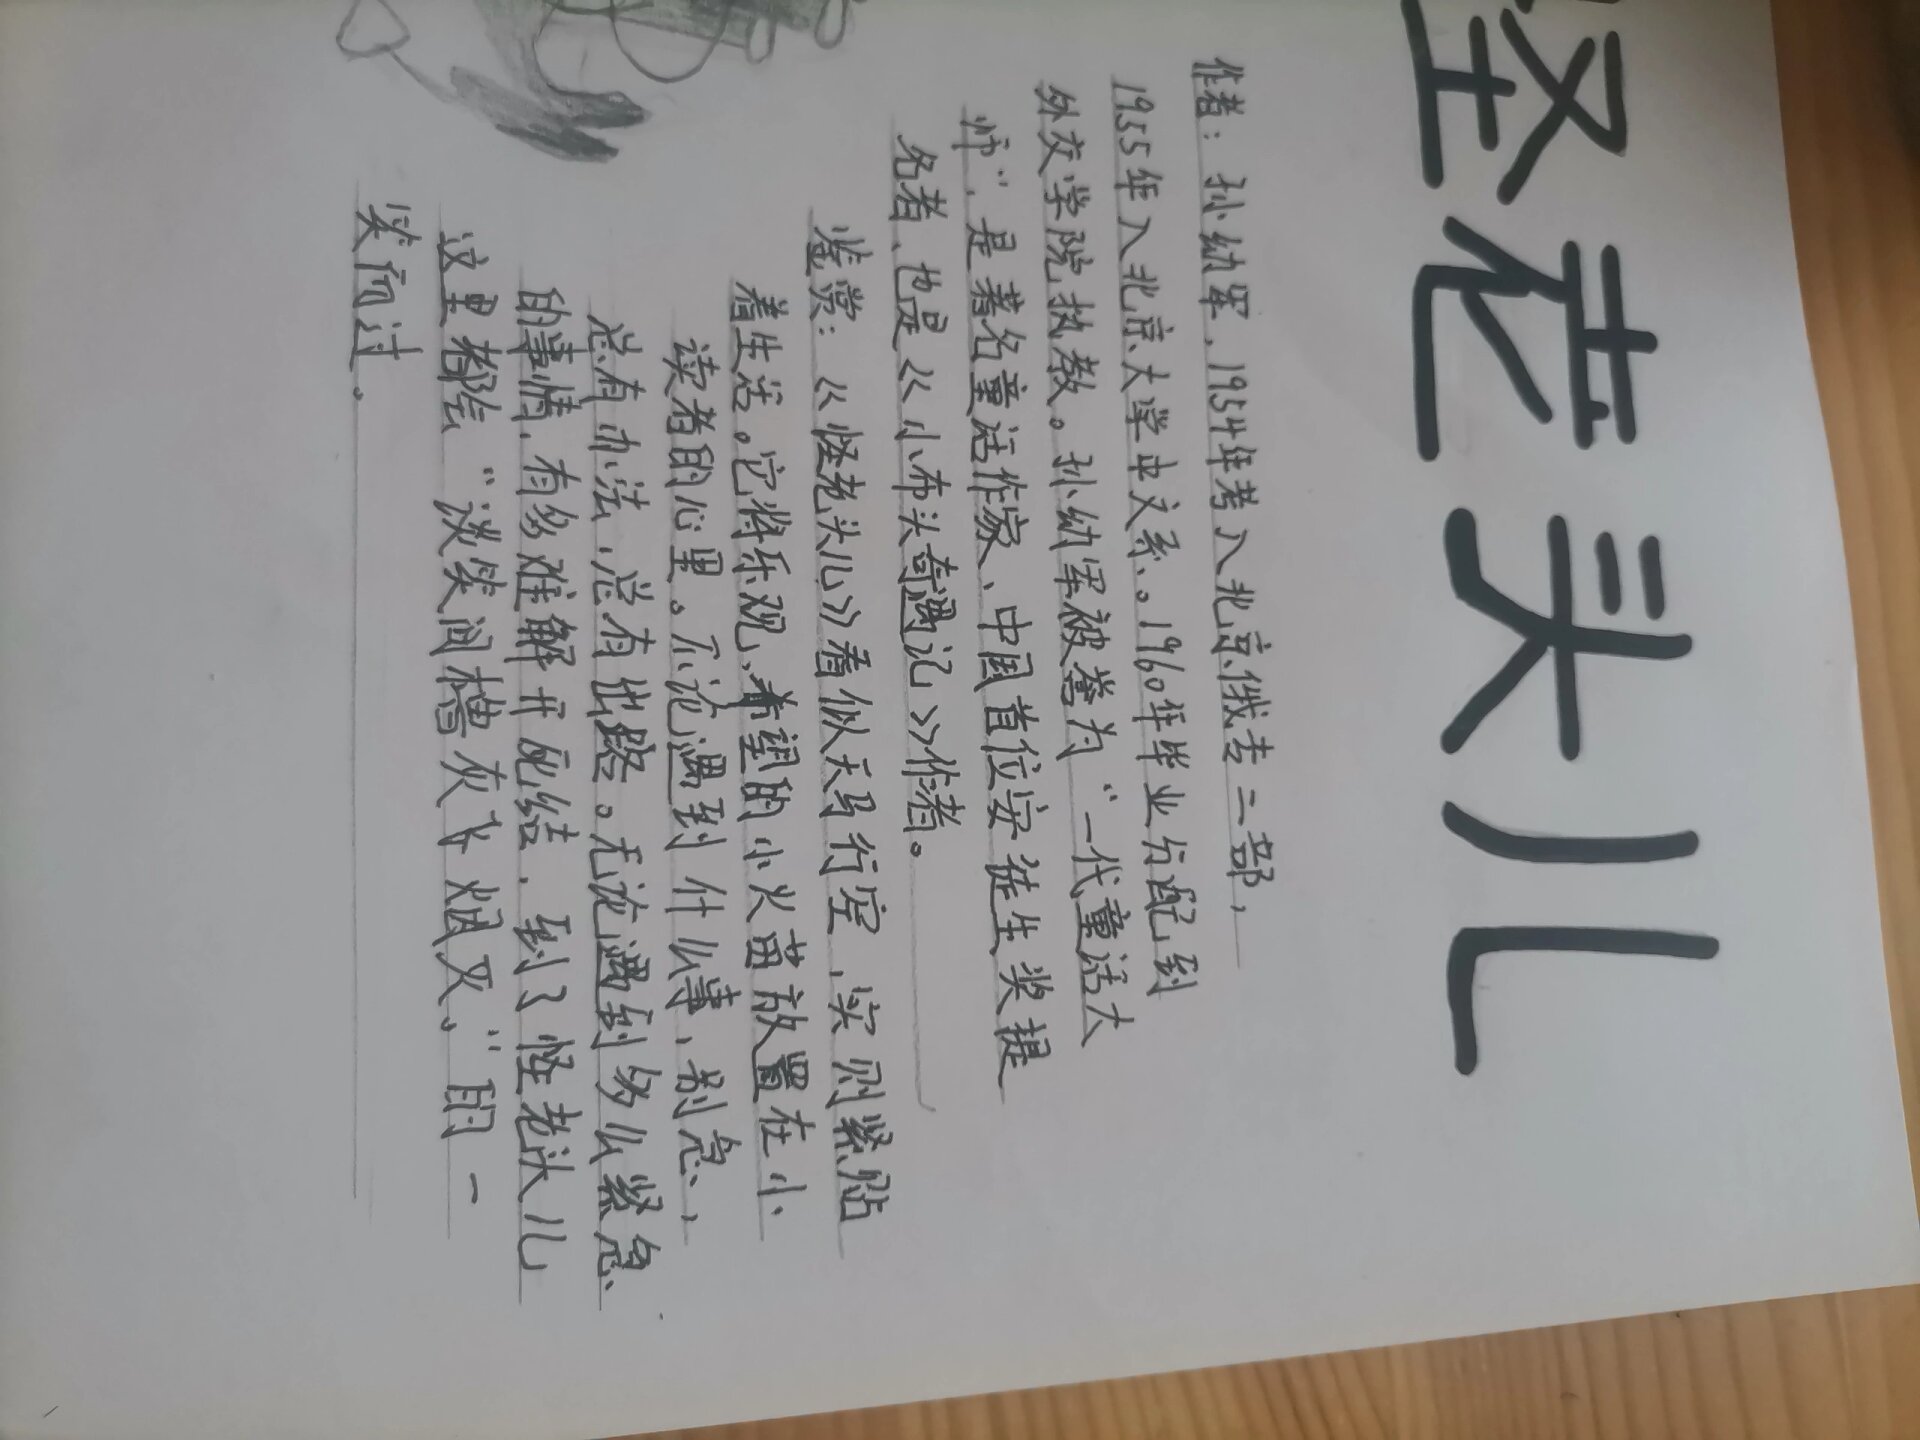 怪老头儿
作者：孙幼军，1954年考入北京俄专二部，
1955年入北京大学中文系。1960年毕业分配到
外交学院执教。孙幼军被誉为“一代童话大
师”，是著名童话作家、中国首位安徒生奖提
名者、也是《小布头奇遇记》作者。
鉴赏：《怪老头儿》看似天马行空，实则紧贴
着生活。它将乐观、希望的小火苗放置在小
读者的心里。不论遇到什么事，别急，
总有办法，总有出路。无论遇到多么紧急
的事情，有多难解开死结，到了怪老头儿
这里都会“淡笑间樯灰飞烟灭。”的一
笑而过。